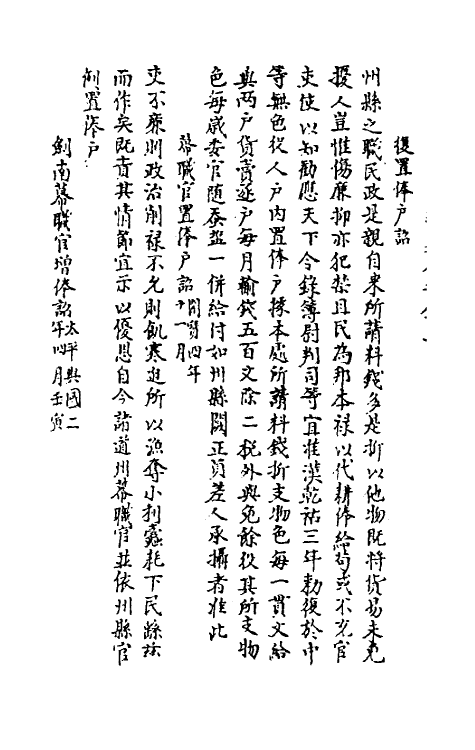 復置俸戶詔
州縣之職民政是親自來所請料錢多是折以他物既將貨易未免
擾人豈惟傷廉抑亦犯禁且民為邦本祿以代耕俸給苟或不充官
吏使以知勸應天下令錄簿尉判司等宜准漢乾祐三年勅復於中
等無色役人戶內置俸戶據本處所請料錢折支物色每一貫文給
與兩戶貨賣逐戶每月輸錢五百文除二稅外與免餘役其所支物
色每歲委官隨蚕塩一併給付如州縣闕正員差人承攝者准此
幕職官置俸戶詔開寶四年十一月
吏不廉則政治削祿不充則飢寒迫所以漁奪小利蠹耗下民繇茲
而作矣既責其情節宜示以優恩自今諸道州幕職官並依州縣官
例置俸戶
劍南幕職官增俸詔太平興國二年四月壬寅